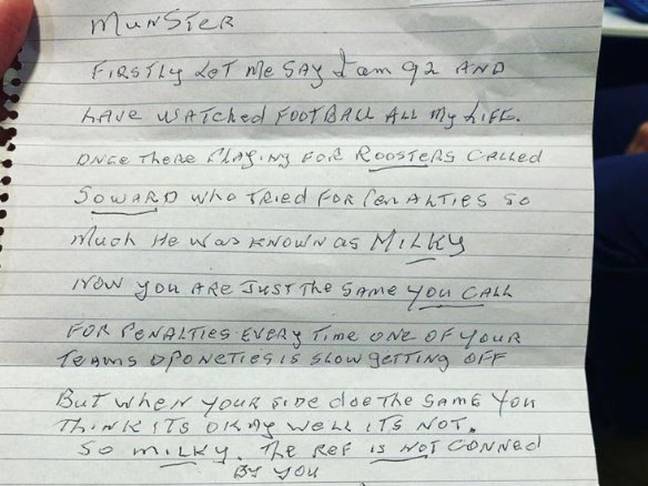 MUNSTER
FIRSTLY LET Me SAY I am 92 AND
HAVE WATCHED FOOTBALL ALL My LIFE.
ONCE There PLAYING FOR ROOSTERS CALLED
SOWARD WHO TRIED FOR PENALTIES SO
MUCH He WAS KNOWN as MILKY
NOW you ARE JUST The SAME YOU CALL
FOR PENALTIES EVERY Time ONE OF YOUR
TEAMS OPONETIES IS SLOW getting OFF
BuT WHEN YOUR SIDE doe The SAME You
THINK ITS OKAY WELL ITS NOT.
SO MILKY. The REF IS NOT CONNED
BY YOU